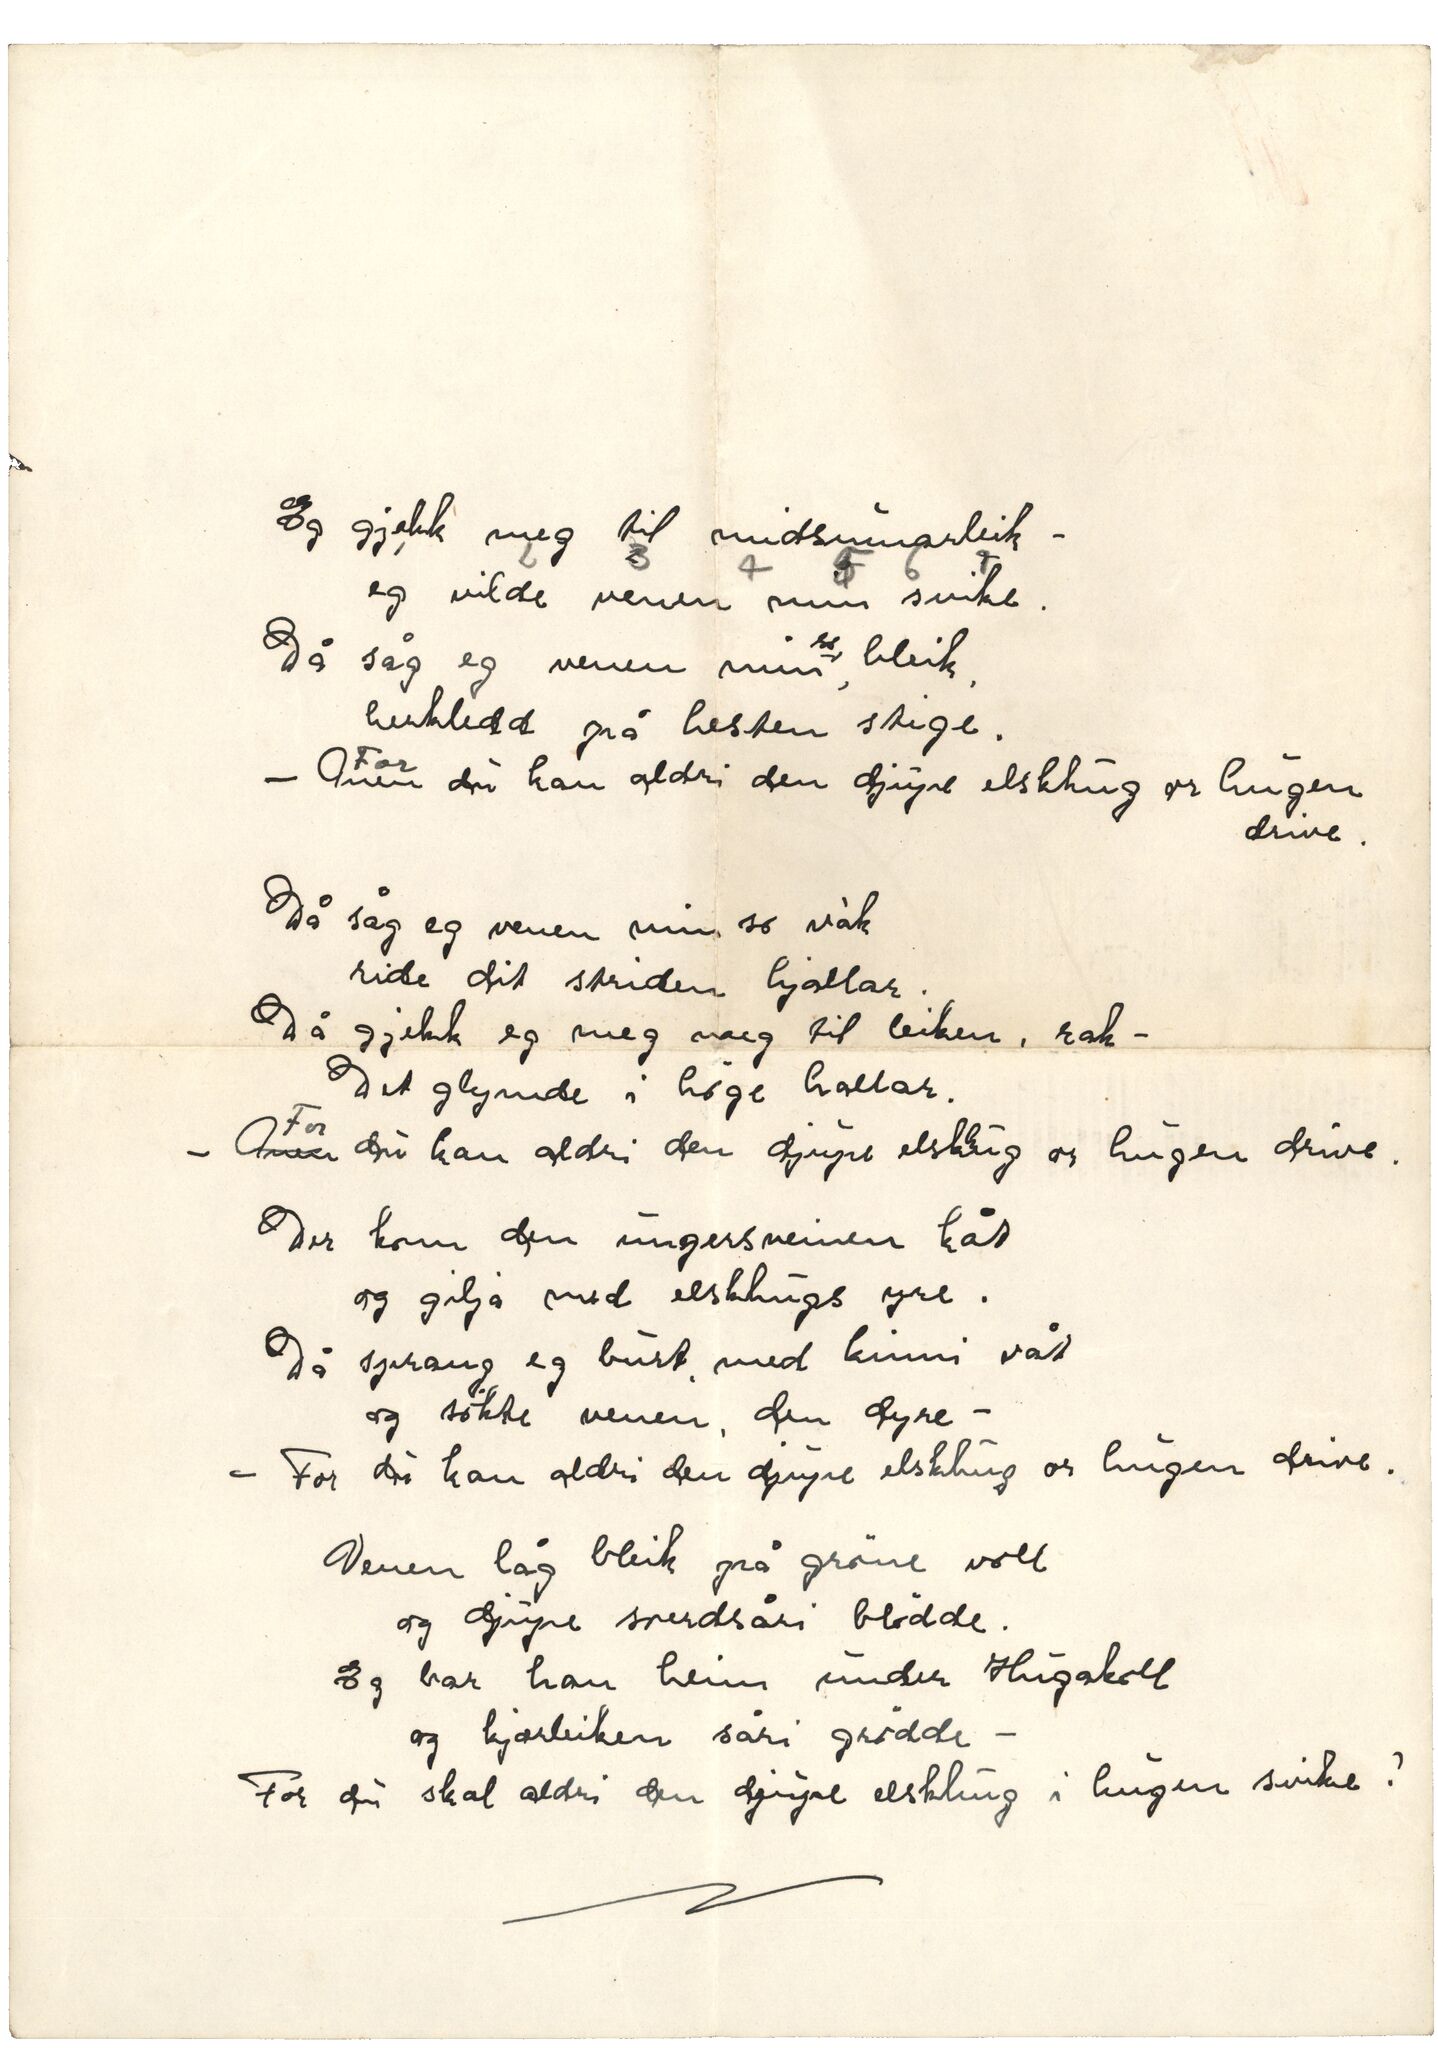 Eg gjekk meg til midsumarleik -
2 3 4 5 6 7
eg vilde venen min svike.
Då såg eg venen min, so bleik,
herkledd på hesten stige.
- For du kan aldri den djupe elskhug or hugen
drive.
Då såg eg venen min so våk
ride dit striden hjallar.
Då gjekk eg meg veg til leiken, rak -
Det glymde i höge hallar.
- For du kan aldri den djupe elskhug or hugen drive.
Der kom den ungersveinen kåt
og gilja med elskhugs yre.
Då sprang eg burt, med kinni våt
og sökte venen, den dyre -
- For du kan aldri den djupe elskhug or hugen drive.
Venen låg bleik på gröne voll
og djupe sverdsåri blödde.
Eg bar han heim under Hugakoll
og kjærleiken såri grödde -
For du skal aldri den djupe elskhug i hugen svike!